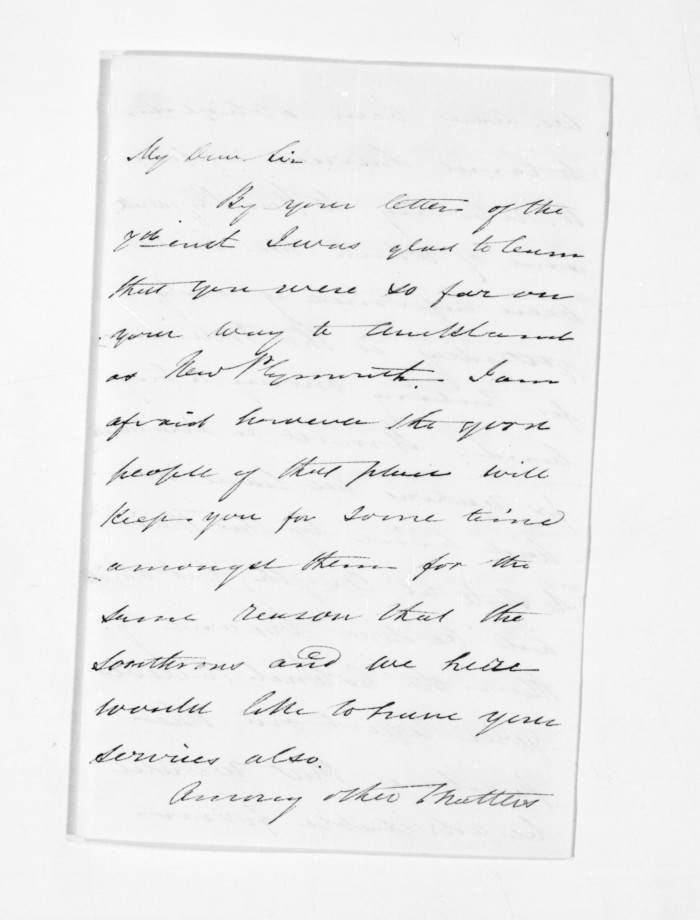 My Dear Sir
By your letter of the
7th inst I was glad to learn
that you were so far on
your way to Auckland
as New Plymouth. I am
afraid however the good
people of that place will
keep you for some time
amongst them for the
same reason that the
Southrons and we here
would like to have your
services also.
Among other Matters